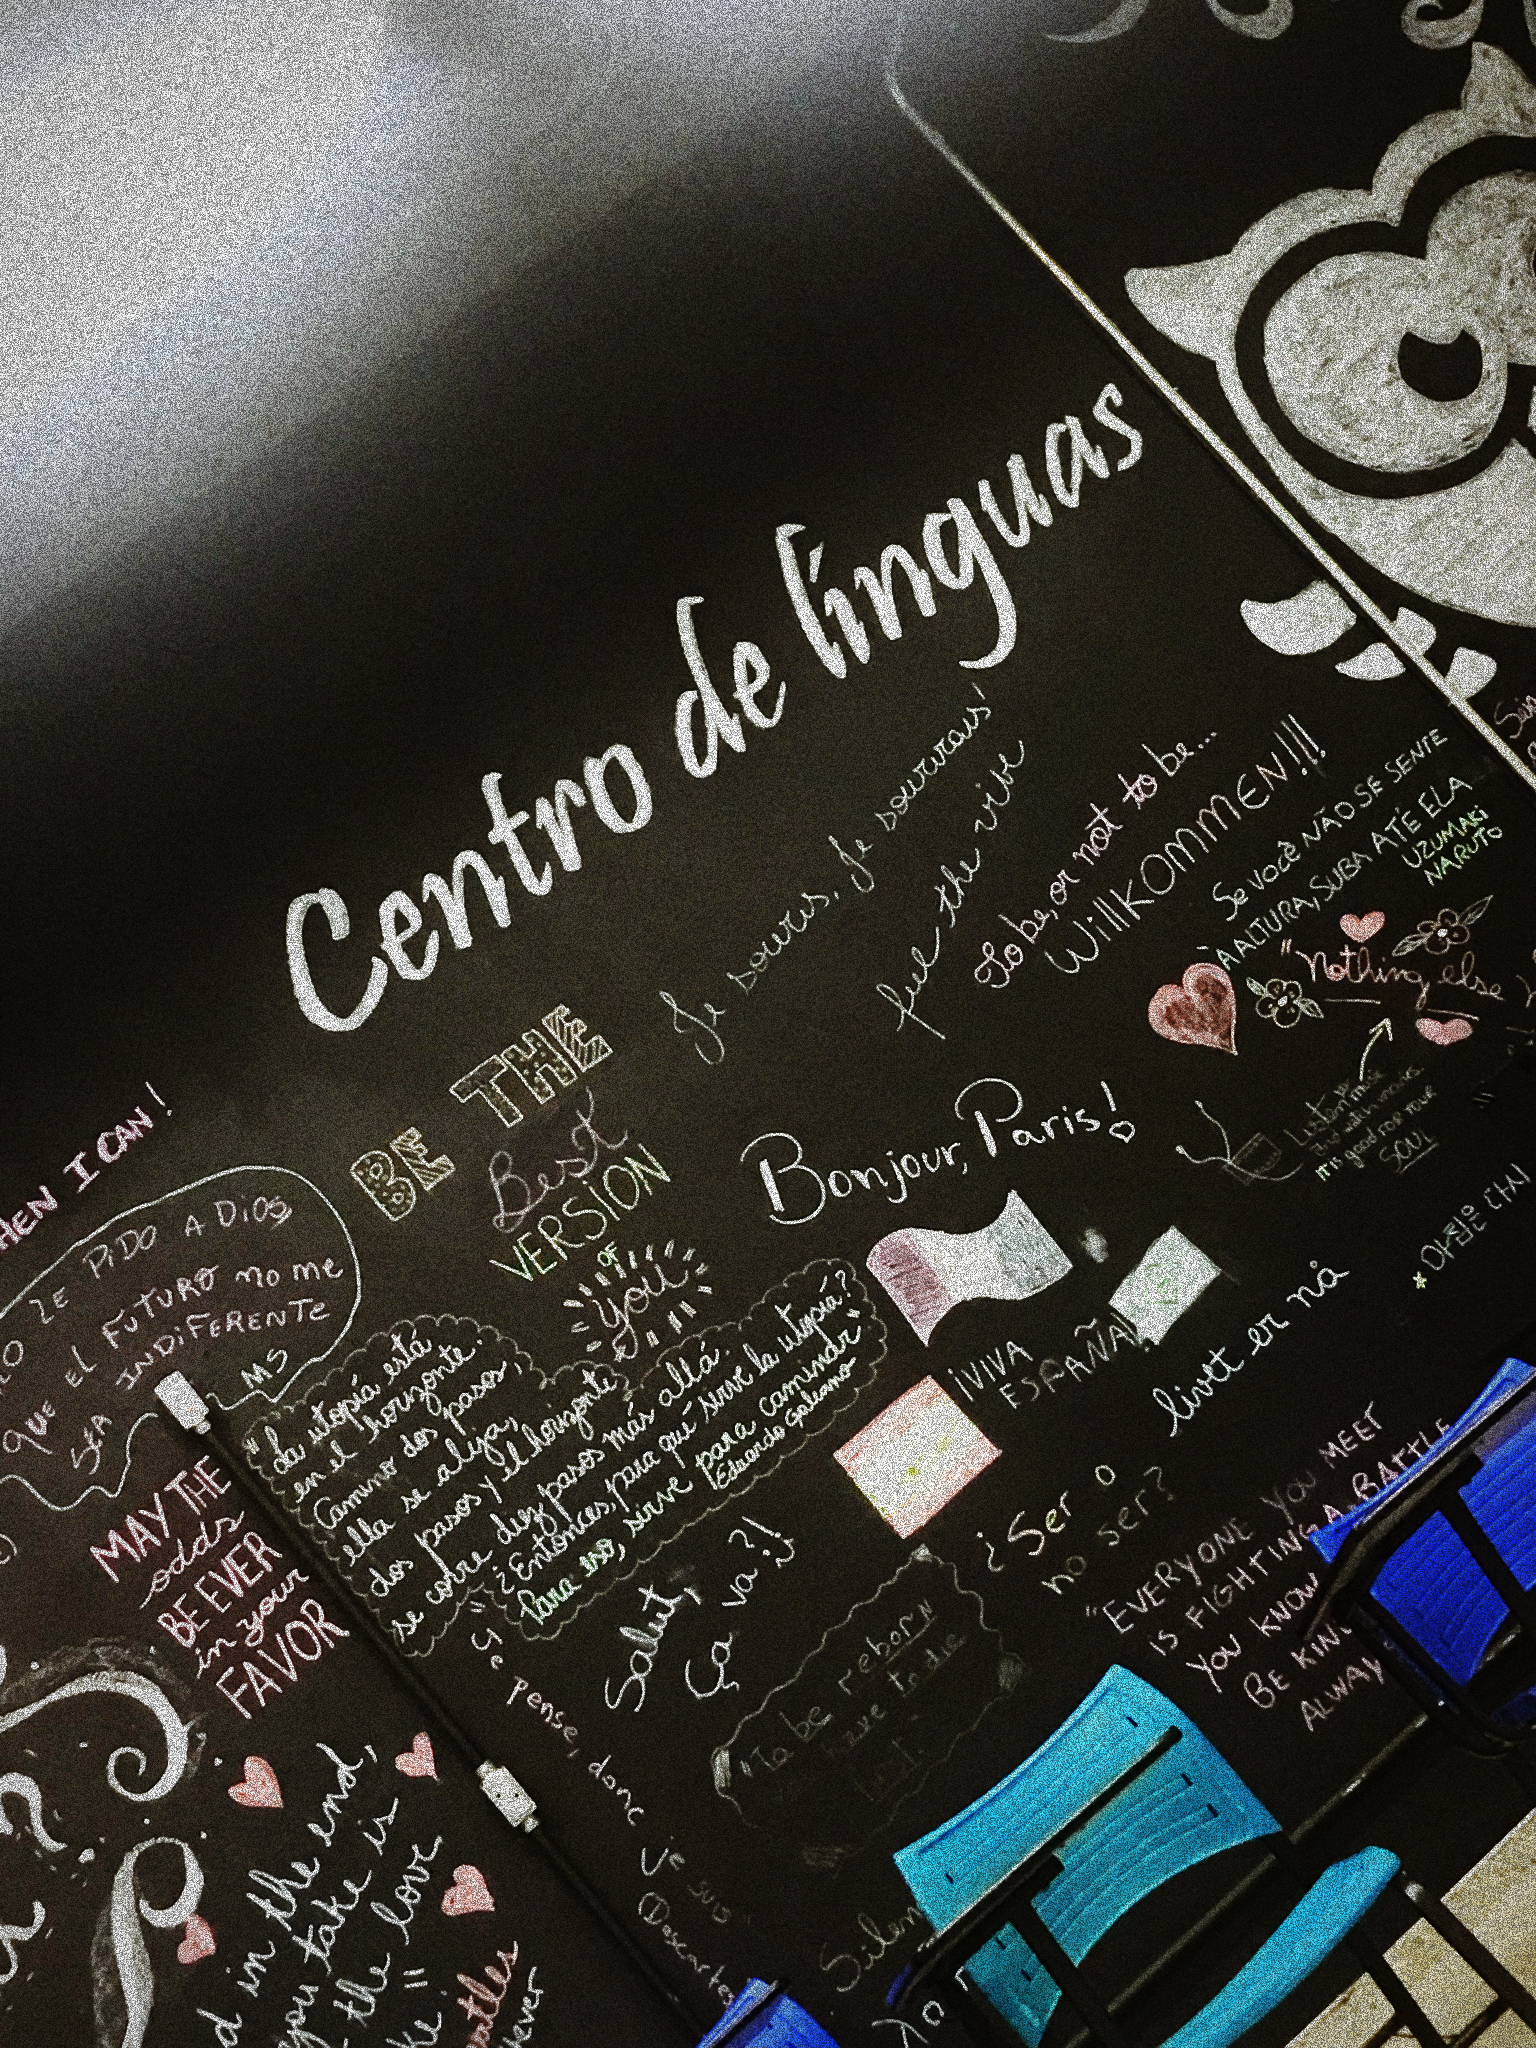 Centro de línguas
Je souris, Je sourirais'
feel the vibe
To be, or not to be...
WillKOMMEN!!!
Se você NÃO SE SENTE
À ALTURA, SUBA ATÉ ELA
UZUMAKI
NARUTO
"Nothing else
Listen music
it is good for your
SOUL
BE THE
Best
VERSION
OF
you
Bonjour, Paris!
¡VIVA
ESPAÑA!
livet er nå
¿Ser o
no ser?
"EVERYONE YOU MEET
IS FIGHTING A BATTLE
YOU KNOW
BE KIN
ALWAY
HEN I CAN!
LE PIDO A DIOS
QUE El FUTURO no me
SEA INDIFERENTE
MS
"La utopía está
en el horizonte.
Camino dos pasos,
ella se aleja,
dos pasos y el horizonte
se corre diez pasos más allá.
¿Entonces, para qué sirve la utopía?
Para eso, sirve para caminar"
Eduardo Galeano
MAY THE
odds
BE EVER
in your
FAVOR
Salut,
Ça va?!
"Je pense, donc je suis"
(Descartes
"To be reborn
have to die
d in the end,
you take is
the love
ke"
atles
Silen